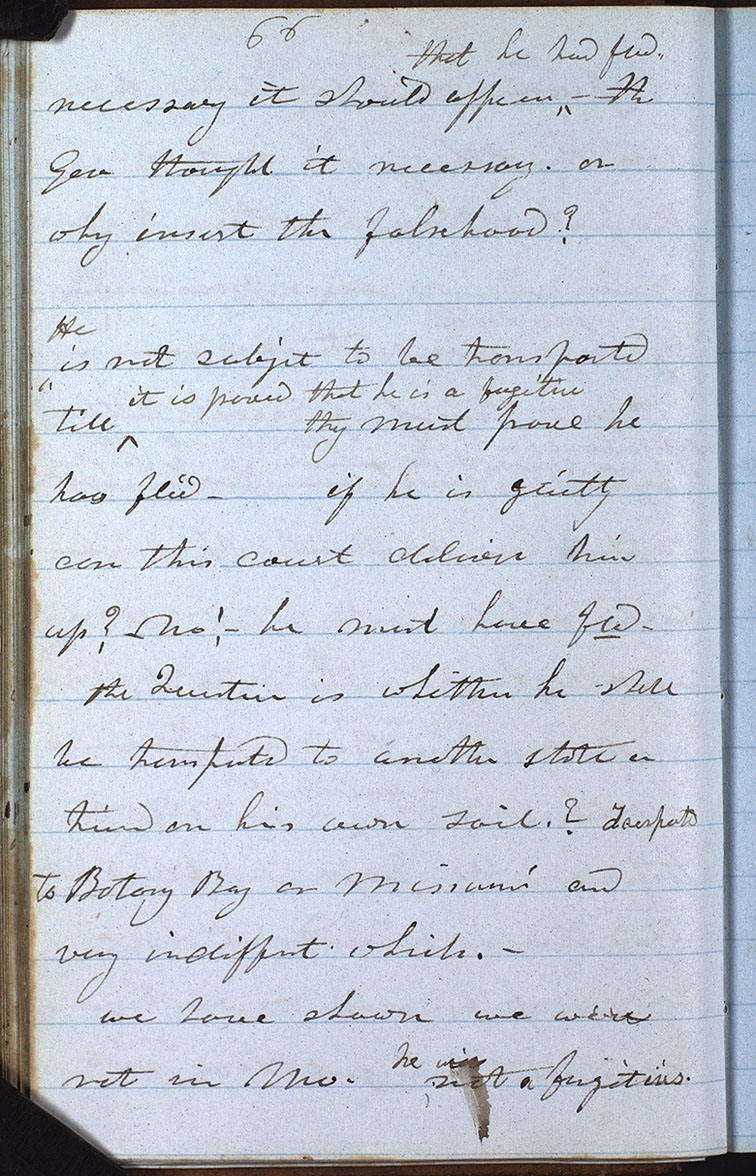 66
that he had fled.
necessary it should appear ‸ – Th
Gov thought it necessary. or
why insert the falsehood?
He
‸ is not subject to be transported
it is proved that he is a fugitive
till ‸ thy must prove he
has fled – if he is guilty
can this court deliver him
up? – No! – he must have fled –
the Question is whither he shall
be transported to another state or
tried on his own soil.? Transpt
to Botany Bay or Missouri and
very indiffent which. –
we have shown we were
not in Mo. he was
not a fugitive.